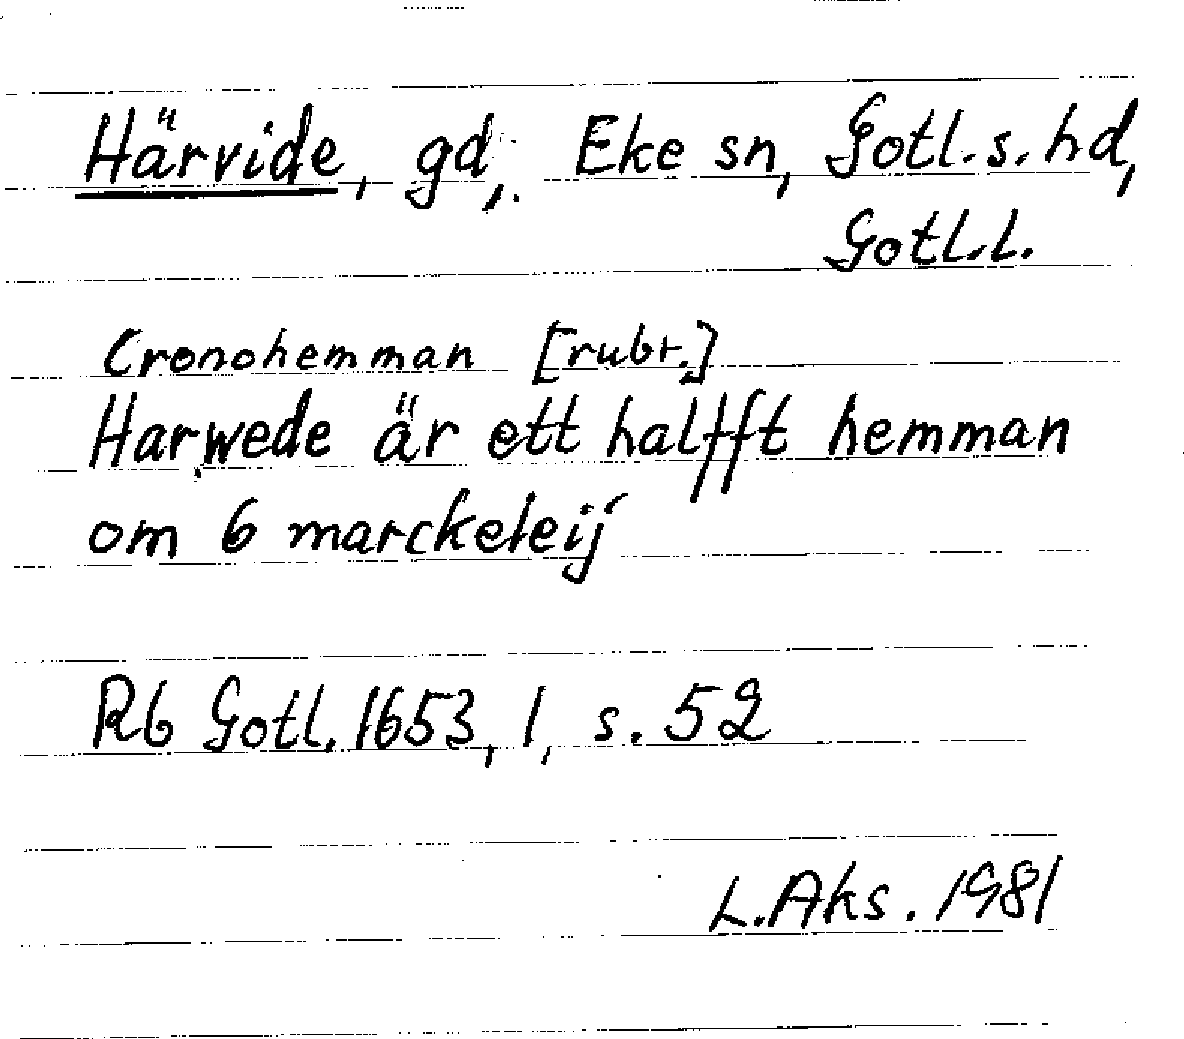 Härvide, gd, Eke sn, Gotl. s. hd,
Gotl. l.
Cronohemman [rubr.]
Harwede är ett halfft hemman
om 6 marckeleij
Rb Gotl. 1653, 1, s. 52
L. Aks. 1981